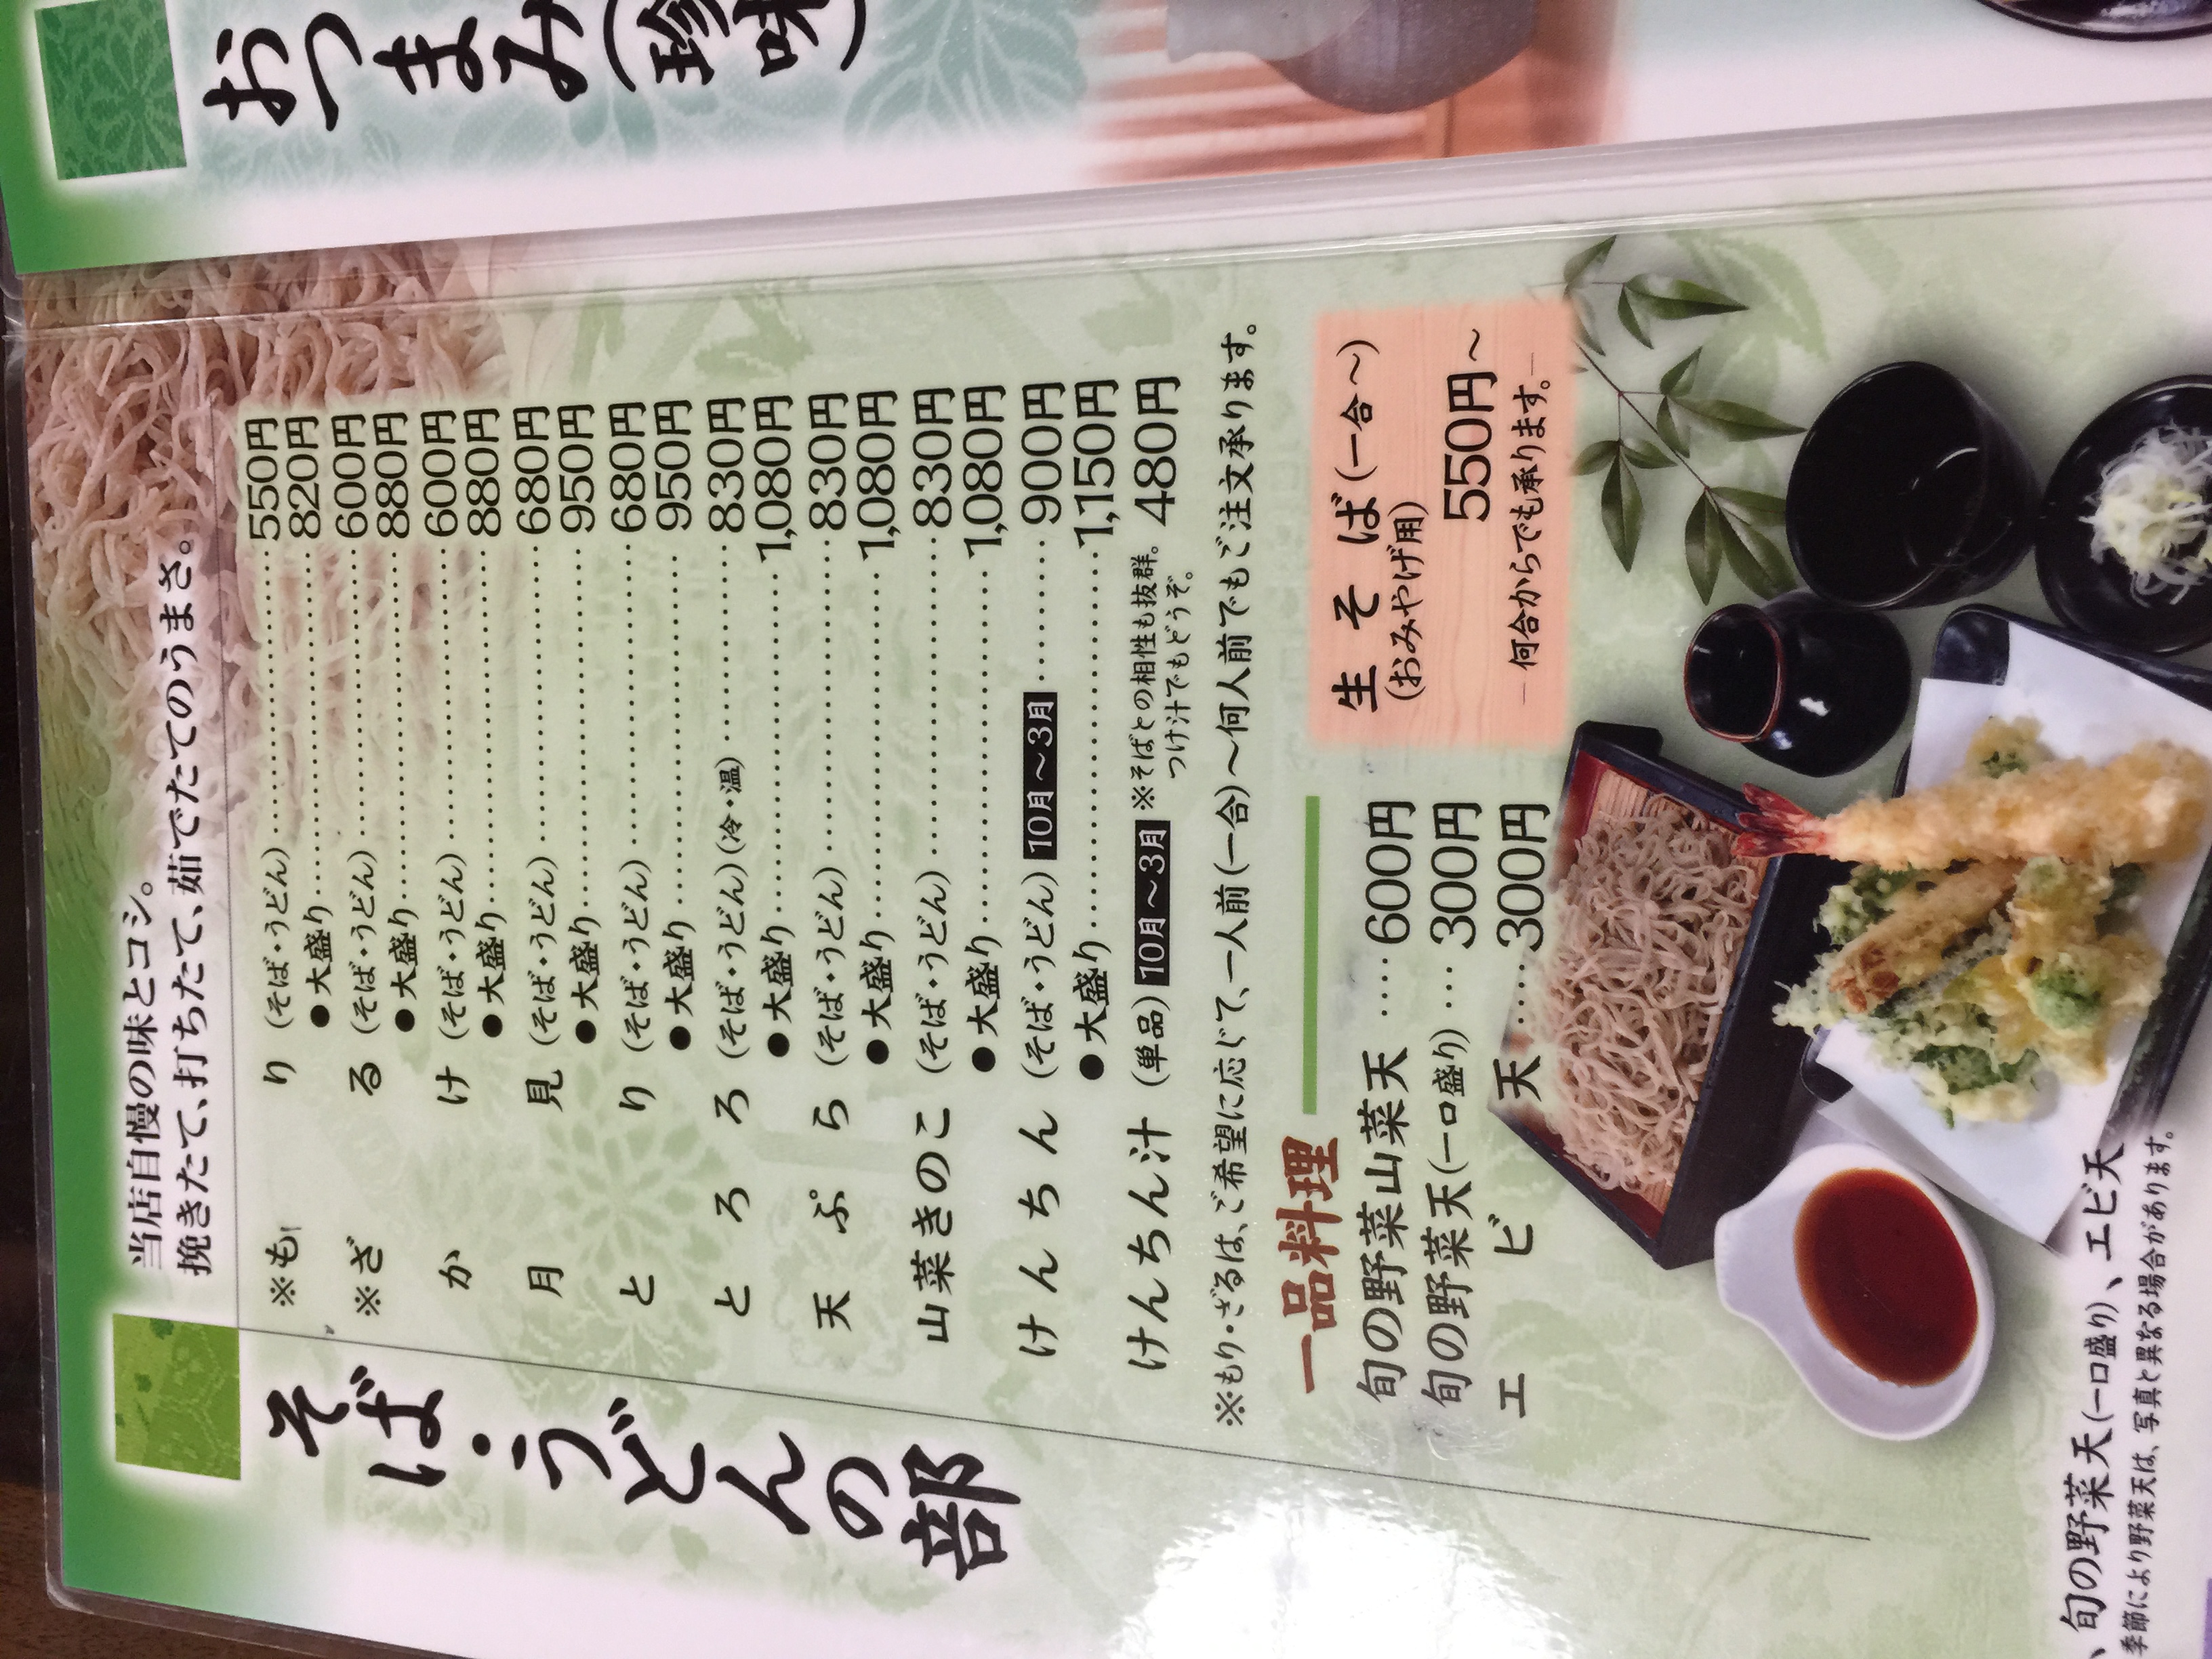 おつまみ(珍味)
そば・うどんの部
当店自慢の味とコシ。
挽きたて、打ちたて、茹でたてのうまさ。
※もり (そば・うどん) 550円
●大盛り 820円
※ざる (そば・うどん) 600円
●大盛り 880円
かけ (そば・うどん) 600円
●大盛り 880円
月見 (そば・うどん) 680円
●大盛り 950円
とり (そば・うどん) 680円
●大盛り 950円
とろろ (そば・うどん)(冷・温) 830円
●大盛り 1,080円
天ぷら (そば・うどん) 830円
●大盛り 1,080円
山菜きのこ (そば・うどん) 830円
●大盛り 1,080円
けんちん (そば・うどん) 10月～3月 900円
●大盛り 1,150円
けんちん汁 (単品) 10月～3月 ※そばとの相性も抜群。 480円
つけ汁でもどうぞ。
※もり・ざるは、ご希望に応じて、一人前(一合)～何人前でもご注文承ります。
一品料理
旬の野菜山菜天 600円
旬の野菜天(一口盛り) 300円
エビ天 300円
生そば(一合～)
(おみやげ用)
550円～
―何合からでも承ります。―
、旬の野菜天(一口盛り)、エビ天
季節により野菜天は、写真と異なる場合があります。